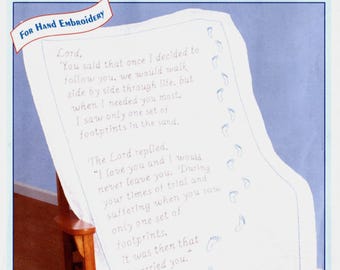 For Hand Embroidery
Lord,
"You said that once I decided to
follow you, we would walk
side by side through life, but
when I needed you most,
I saw only one set of
footprints in the sand.
The Lord replied,
"I love you and I would
never leave you. "During
your times of trial and
suffering when you saw
only one set of
footprints,
It was then that
carried you."